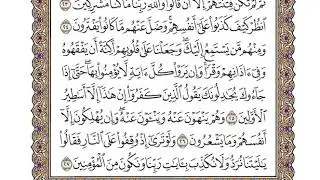 ثُمَّ لَمْ تَكُن فِتْنَتُهُمْ إِلَّا أَن قَالُوا۟ وَٱللَّهِ رَبِّنَا مَا كُنَّا مُشْرِكِينَ ٢٣
ٱنظُرْ كَيْفَ كَذَبُوا۟ عَلَىٰٓ أَنفُسِهِمْ وَضَلَّ عَنْهُم مَّا كَانُوا۟ يَفْتَرُونَ ٢٤
وَمِنْهُم مَّن يَسْتَمِعُ إِلَيْكَ وَجَعَلْنَا عَلَىٰ قُلُوبِهِمْ أَكِنَّةً أَن يَفْقَهُوهُ
وَفِىٓ ءَاذَانِهِمْ وَقْرًا وَإِن يَرَوْا۟ كُلَّ ءَايَةٍ لَّا يُؤْمِنُوا۟ بِهَا حَتَّىٰٓ إِذَا
جَآءُوكَ يُجَـٰدِلُونَكَ يَقُولُ ٱلَّذِينَ كَفَرُوٓا۟ إِنْ هَـٰذَآ إِلَّآ أَسَـٰطِيرُ
ٱلْأَوَّلِينَ ٢٥ وَهُمْ يَنْهَوْنَ عَنْهُ وَيَنْـَٔوْنَ عَنْهُ وَإِن يُهْلِكُونَ إِلَّآ
أَنفُسَهُمْ وَمَا يَشْعُرُونَ ٢٦ وَلَوْ تَرَىٰٓ إِذْ وُقِفُوا۟ عَلَى ٱلنَّارِ فَقَالُوا۟
يَـٰلَيْتَنَا نُرَدُّ وَلَا نُكَذِّبَ بِـَٔايَـٰتِ رَبِّنَا وَنَكُونَ مِنَ ٱلْمُؤْمِنِينَ ٢٧